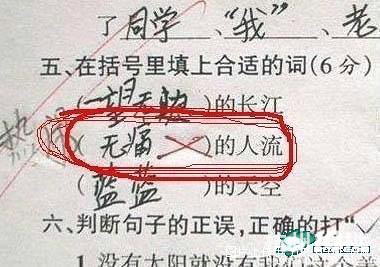 了同学、“我”、老
五、在括号里填上合适的词(6分)
(一望无	)的长江
(无痛	)的人流
(蓝蓝)的天空
六、判断句子的正误，正确的打“√
1.没有太阳就没有我们这个美